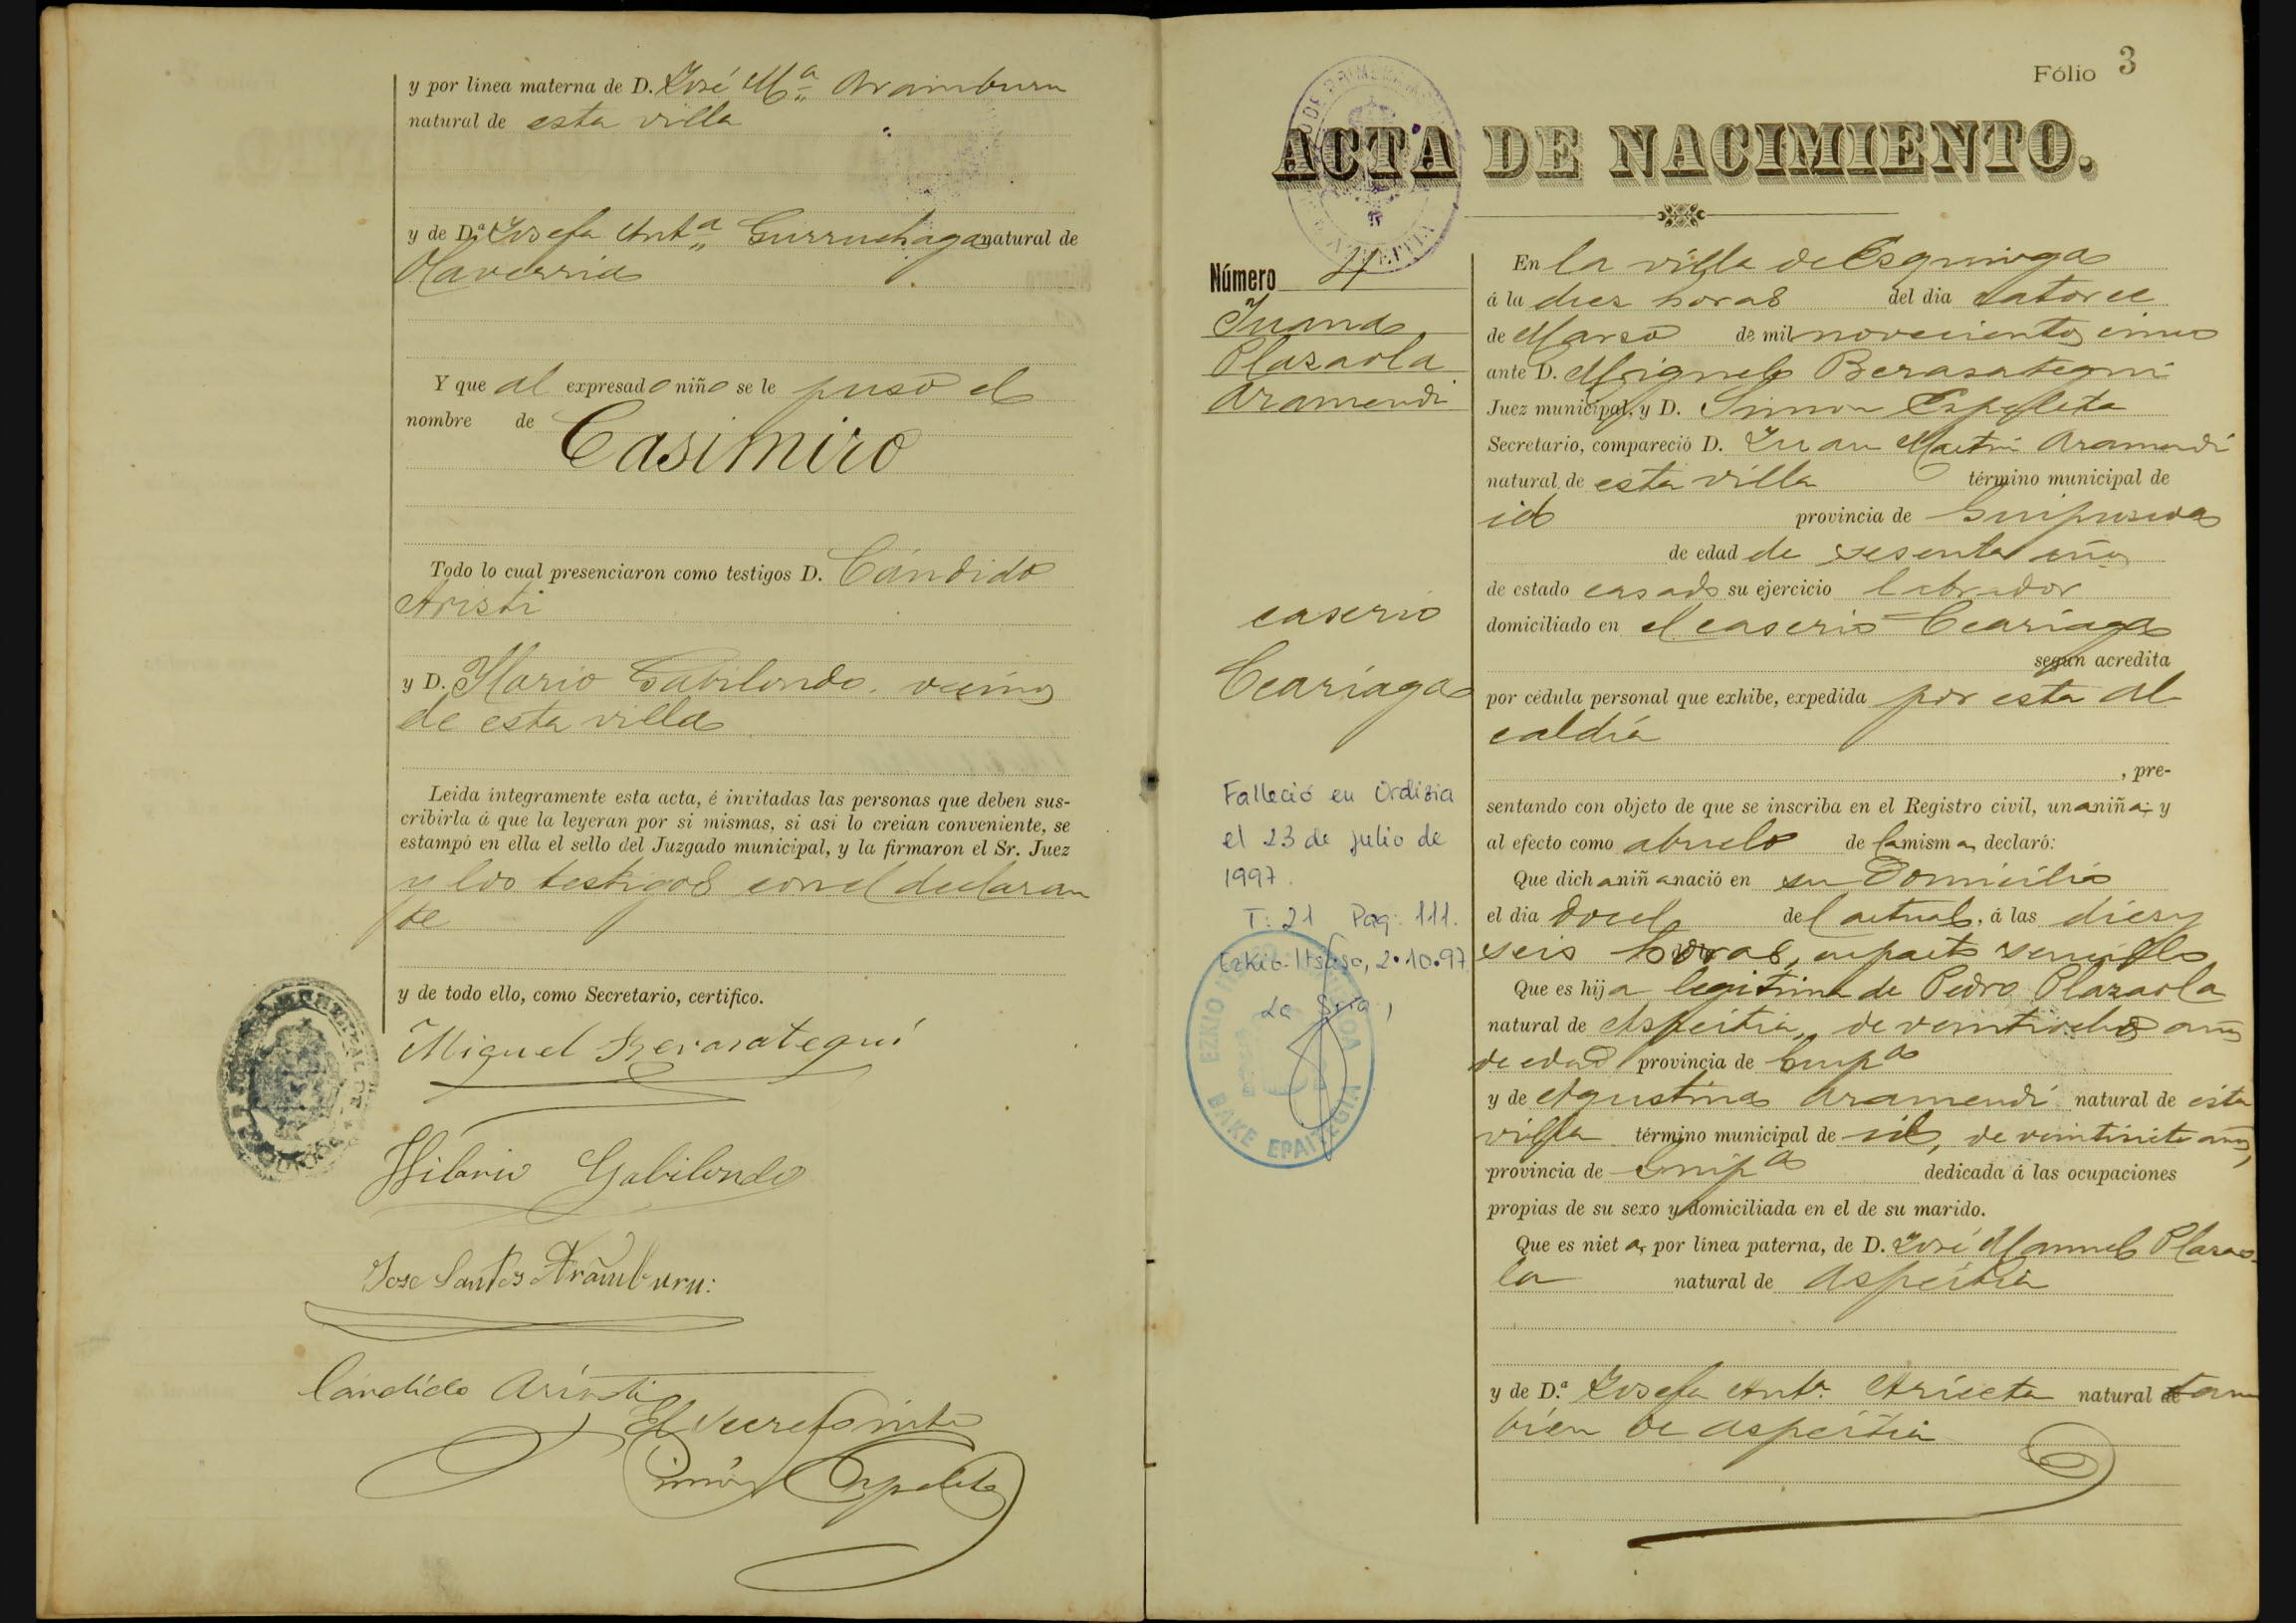 y por línea materna de D. José Mª Aramburu
natural de esta villa
y de D.ª Josefa Antª Gurruchaga natural de
Olaverria
Y que al expresado niño se le puso el
nombre de
Casimiro
Todo lo cual presenciaron como testigos D. Cándido
Aristi
y D. Hilario Gabilondo, vecinos
de esta villa
Leida íntegramente esta acta, é invitadas las personas que deben sus-
cribirla á que la leyeran por si mismas, si asi lo creian conveniente, se
estampó en ella el sello del Juzgado municipal, y la firmaron el Sr. Juez
y los testigos con el declaran
te
y de todo ello, como Secretario, certifico.
Miguel Berasategui
Hilario Gabilondo
Jose Santos Aramburu:
Candido Aristi
El Secretario
Simón Ezpeleta
Fólio 3
ACTA DE NACIMIENTO.
Número 4
Juana
Plazaola
Aramendi
caserio
Ceariaga
Falleció en Ordizia
el 23 de julio de
1997.
T: 21 Pag: 111.
Ezkio-Itsaso, 2.10.97
La Sria,
BAKE EPAITEGIA
En la villa de Esquioga
á la diez horas del dia catorce
de Marzo de mil novecientos cinco
ante D. Miguel Berasategui
Juez municipal, y D. Simon Ezpeleta
Secretario, compareció D. Juan Martin Aramendi
natural de esta villa término municipal de
id provincia de Guipuzcoa
de edad de sesenta años
de estado casado su ejercicio labrador
domiciliado en el caserio Ceariaga
según acredita
por cédula personal que exhibe, expedida por esta Al
caldía
, pre-
sentando con objeto de que se inscriba en el Registro civil, una niña; y
al efecto como abuelo de la misma, declaró:
Que dicha niña nació en su domicilio
el dia doce del actual, á las diez y
seis horas, en parto sencillo
Que es hija legitima de Pedro Plazaola
natural de Aspeitia, de veintiocho años
de edad provincia de Guipª
y de Agustina Aramendi natural de esta
villa término municipal de id, de veintisiete años,
provincia de Guipª dedicada á las ocupaciones
propias de su sexo y domiciliada en el de su marido.
Que es nieta, por línea paterna, de D. José Manuel Plazao
la natural de Aspeitia
y de D.ª Josefa Antª. Arieeta natural de tam
bien de Aspeitia